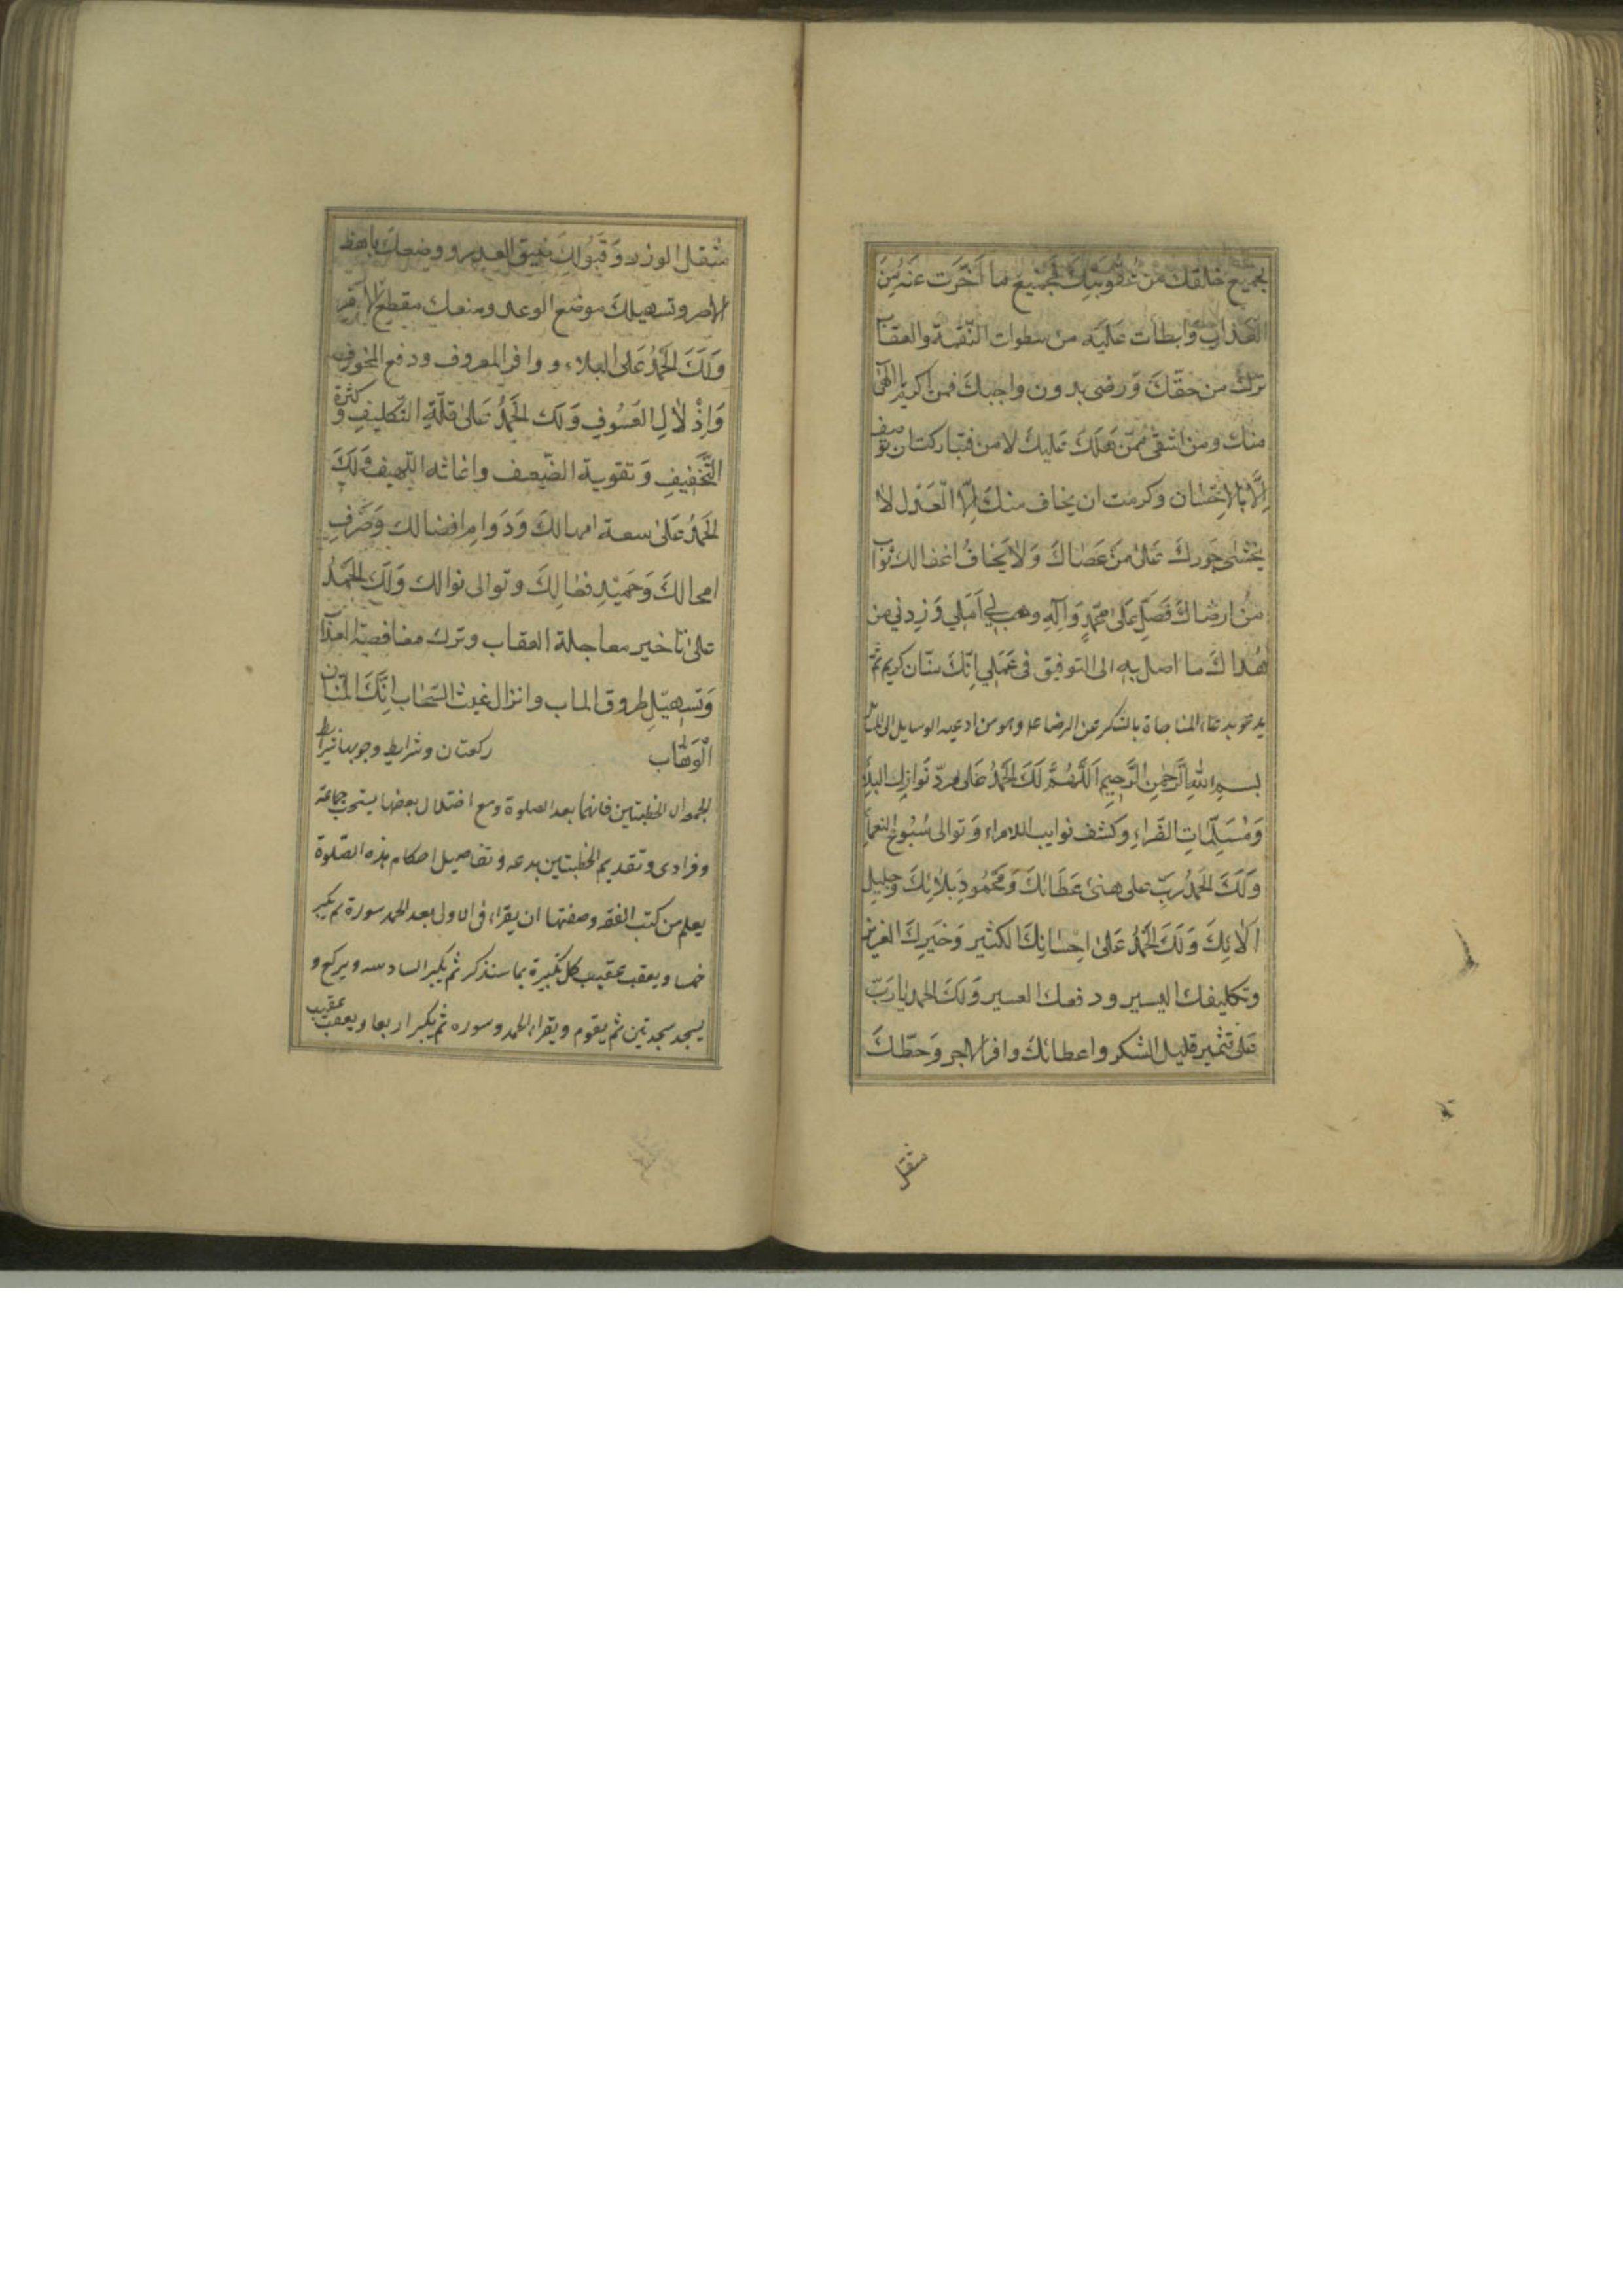 بجميع خلقك من عقوبتك بجميع ما اخّرت عنه من
العذاب وابطأت عليه من سطوات النّقمة والعقاب
ترك من حقّك ورضى بدون واجبك فمن اكرم يا الهى
منك ومن اشقى ممّن هلك عليك لا من فتباركت ان توصف
اِلّا بالاِحْسان وكرمت ان يخاف منك اِلّا العَدْل لا
يخشى جورك على من عَصاك وَلا يَخاف اغفالك ثواب
من ارضاك فَصَلِّ عَلى محمّدٍ وَآلِهِ وهب لي اَملي وَزِدني من
هُداك ما اصل به الى التوفيق فى عَمَلي اِنّك منّان كريم ثمّ
يدعو بدعاء المناجاة بالشكر عن الرضا علـ وهو من ادعيه الوسايل الى المسائل
بسم اللهِ الرَّحمٰنِ الرَّحيمِ اَللّهُمَّ لَكَ الحَمدُ عَلى مردّ نَوازِل البلاء
وَمُسَلِّمَاتِ الضّراءِ وكشف نوايب اللاواء وَتوالى سُبُوغ النعماء
وَلَكَ الحَمدُ رَبِّ على هنئ عَطَائكَ وَمَحْمُودِ بَلائِكَ وجليل
آلائِكَ وَلَكَ الحَمدُ عَلى اِحْسَانِكَ الكثير وَخَيرِكَ الغزير
وتكليفك اليسير ودفعك العسير وَلَكَ الحمد يا رَبّ
على تثمير قليل الشكر واعطائك وافر الاجر وَحَطّكَ
مثقل
مثقل الوزر وَقَبُولِكَ ضيق العذر ووضعك باهظ
الاصر وتسهيلك موضع الوعر ومنعك مقطع الامر
وَلَكَ الحَمدُ عَلى البلاء ووافر المعروف ودفع المخوف
وَاِذْلالِ العَسُوفِ وَلَكَ الحَمدُ عَلى قلّةِ التّكليفِ وكثرة
التَّخفيفِ وَتقوية الضّعيف واغاثه اللّهيف وَلَكَ
الحَمدُ عَلى سعة امهالكَ وَدَوامِ افضالك وَصَرفِ
امحالكَ وَحَميدِ فعالِكَ وتوالى نوالك وَلَكَ الحَمدُ
على تاخير معاجلة العقاب وترك مغافصة العذاب
وَتسهيلِ طروق الماب وانزال غيث السَّحاب اِنَّكَ المنّان
الْوَهّاب ركعتان وشرايط وجوبها شرايط
الجمعه الا الخطبتين فانهما بعد الصلوة ومع اختلال بعضها يستحب جماعة
وفرادى وتقديم الخطبتين بدعه وتفاصيل احكام هذه الصّلوة
يعلم من كتب الفقه وصفتها ان يقراء فى الاولى بعد الحمد سورة ثم يكبر
خمسا ويعقب عقيب كل تكبيرة بما سنذكر ثم يكبر السادسه ويركع و
يسجد سجدتين ثم يقوم ويقراء الحمد وسوره ثم يكبر اربعا ويعقب عقيب